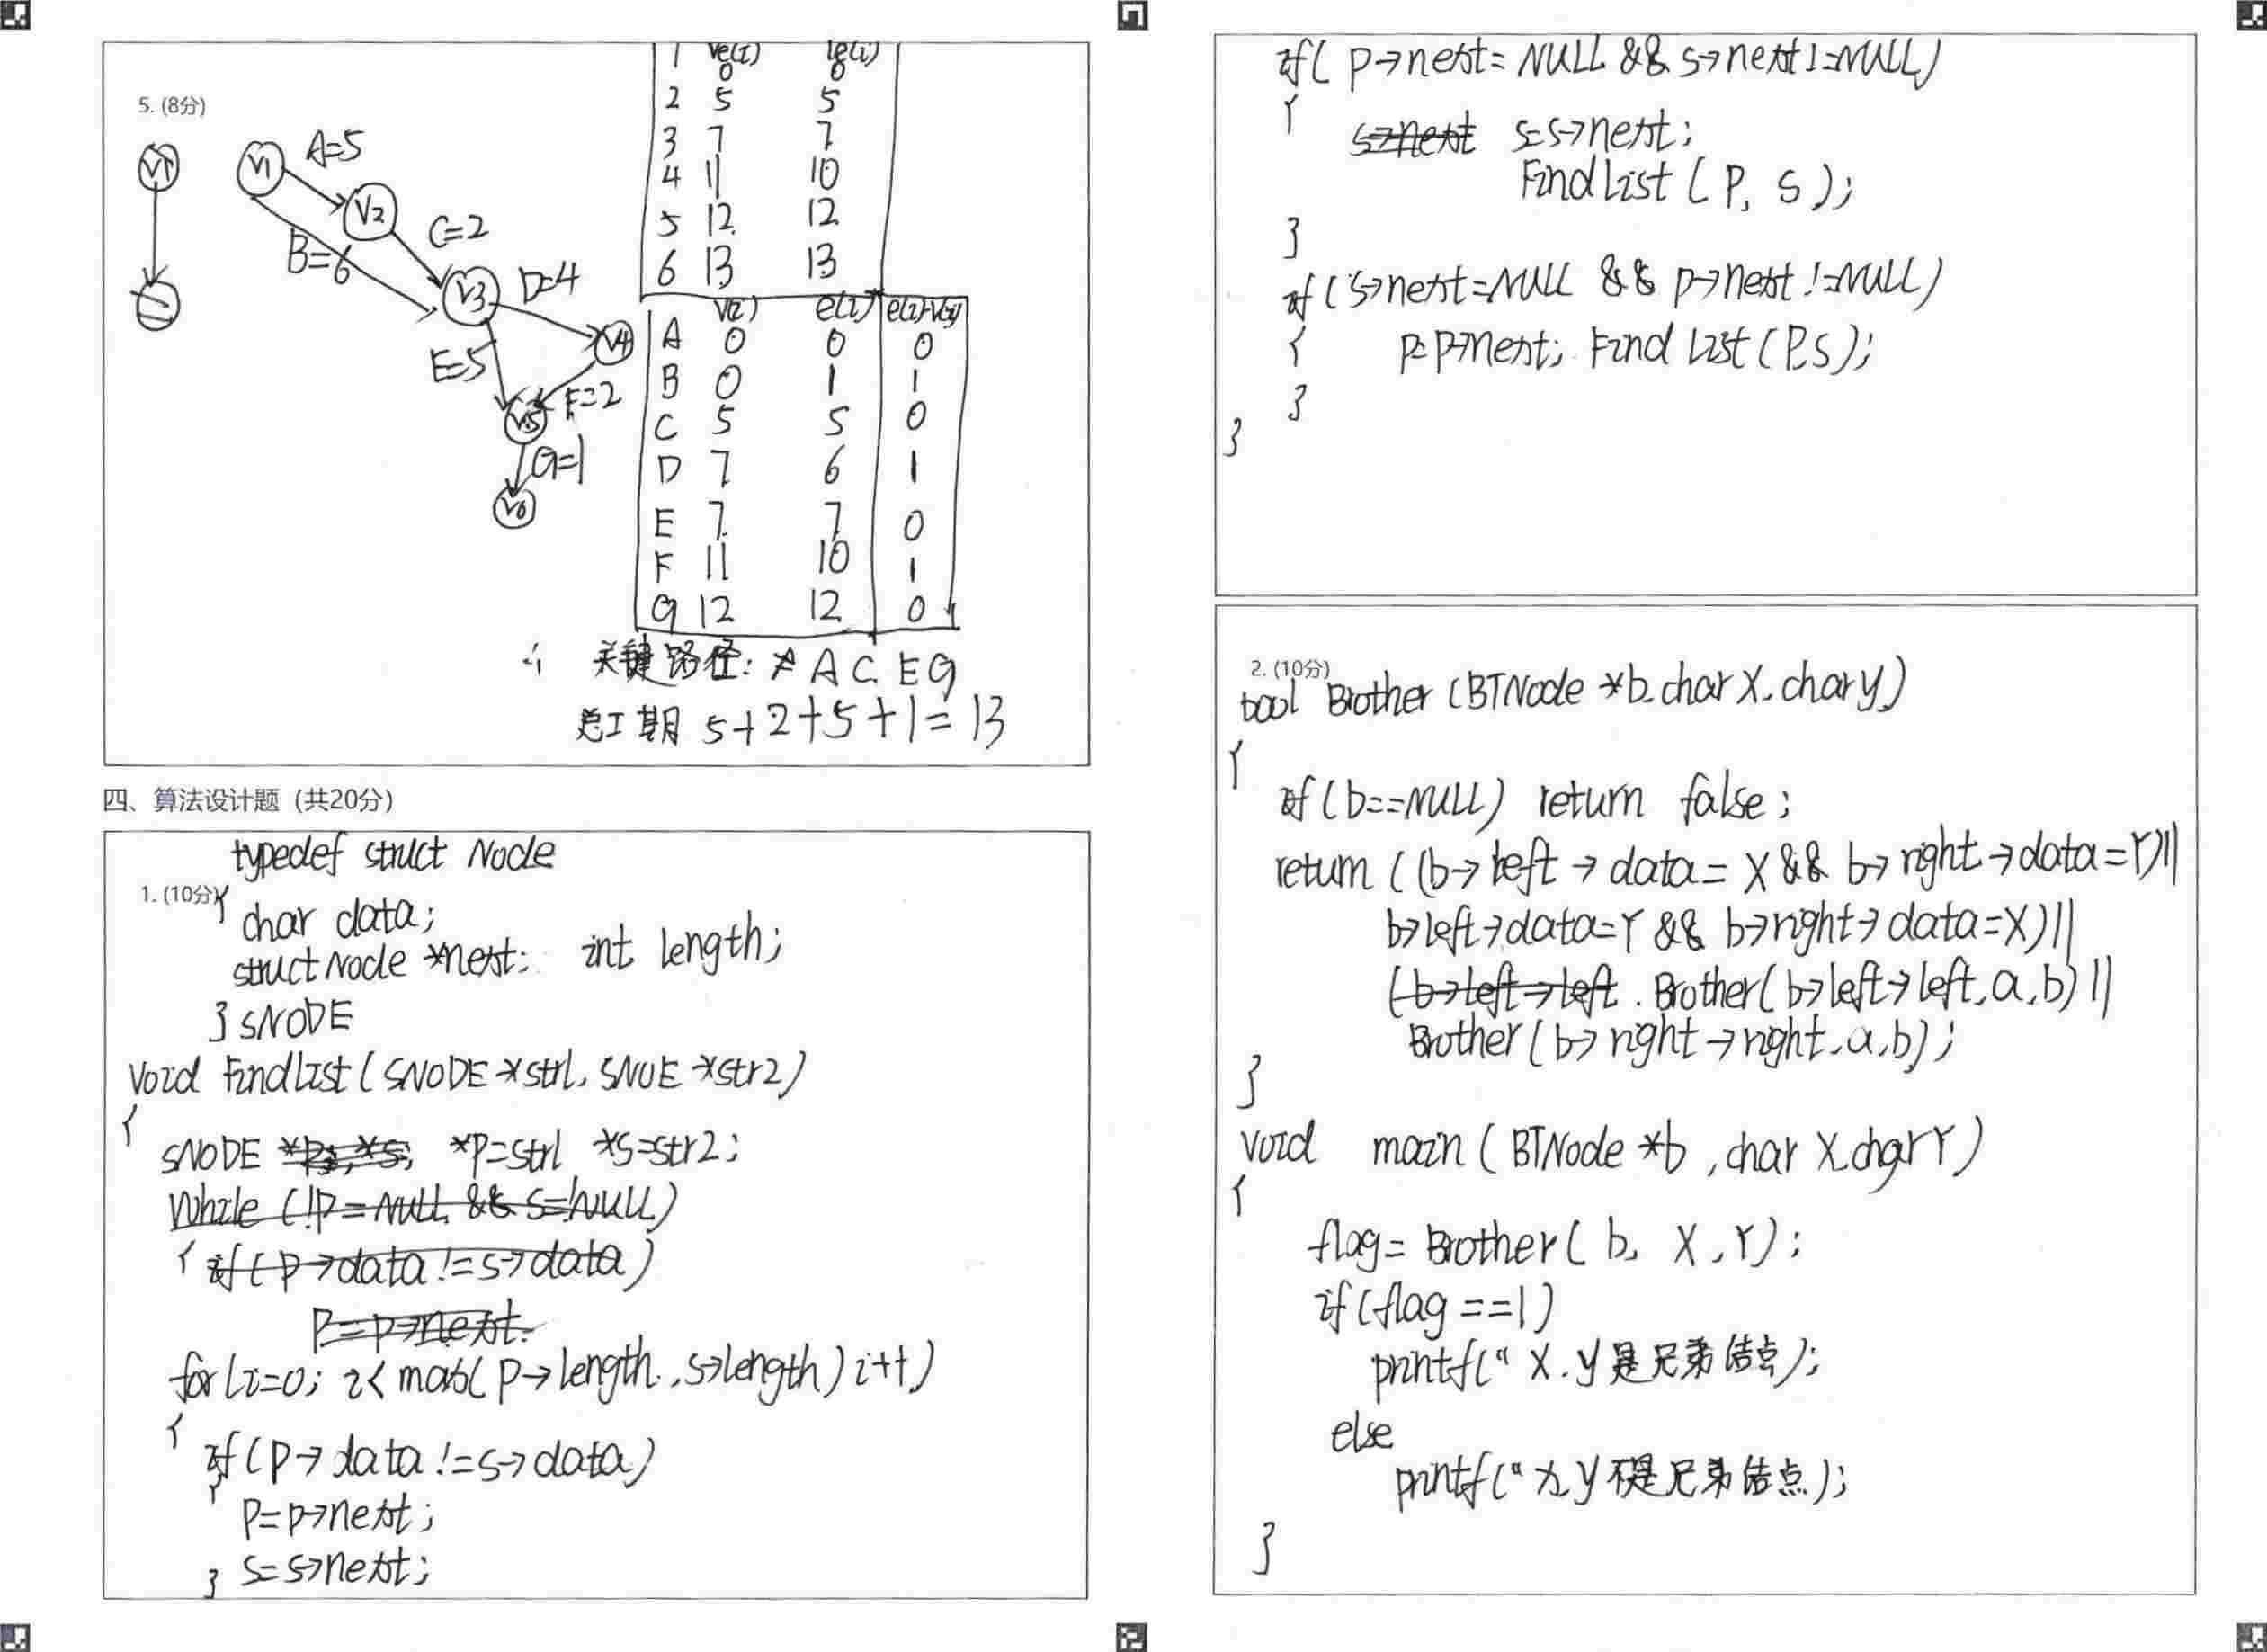 5. (8分)
V1
V1
A=5
V2
B=6
C=2
V3
D=4
V4
E=5
F=2
V5
G=1
V6
1 ve(i) le(i)
0 0
2 5 5
3 7 7
4 11 10
5 12 12
6 13 13
v(i) e(i) e(i)-v(i)
A 0 0 0
B 0 1 1
C 5 5 0
D 7 6 1
E 7 7 0
F 11 10 1
G 12 12 0
∴ 关键路径: A C E G
总工期 5+2+5+1=13
四、算法设计题（共20分）
typedef struct Node
1. (10分) {
char data;
struct Node *next; int length;
} SNODE
void FindList (SNODE *str1, SNOE *str2)
{
SNODE *p, *s, *p=str1 *s=str2;
While (!p=NULL && s=!NULL)
{ if (p->data != s->data)
p=p->next.
for (i=0; i< max( p->length, s->length) i++)
{
if (p-> data != s-> data)
{
p=p->next;
} s=s->next;
if( p->next= NULL && s->next!=NULL)
{
s->next s=s->next;
FindList ( P, S );
}
if (s->next=NULL && p->next !=NULL)
{ p=p->next; Find List (P,S);
}
}
2. (10分)
bool Brother (BTNode *b, char X, char y)
{
if (b==NULL) return false;
return ((b-> left -> data= X && b-> right -> data=Y)||
b->left->data=Y && b->right-> data=X)||
(b->left->left. Brother( b->left->left, a, b) ||
Brother (b-> right ->right, a, b);
}
void main ( BTNode *b , char X, char Y )
{
flag= Brother( b, X, Y );
if (flag ==1)
printf(" X, y 是兄弟结点);
else
printf(" x, y 不是兄弟结点);
}